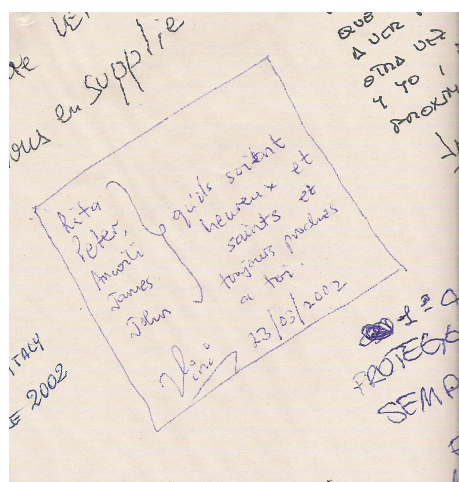 ous en supplie
QUE
A VER
OTRA VEZ
Y YO
Rita
Peter,
James
John
qu'ils soient
heureux et
saints et
toujours proches
à toi.
23/03/2002
ITALY
2002
1ª
PROTEGO
SEMP